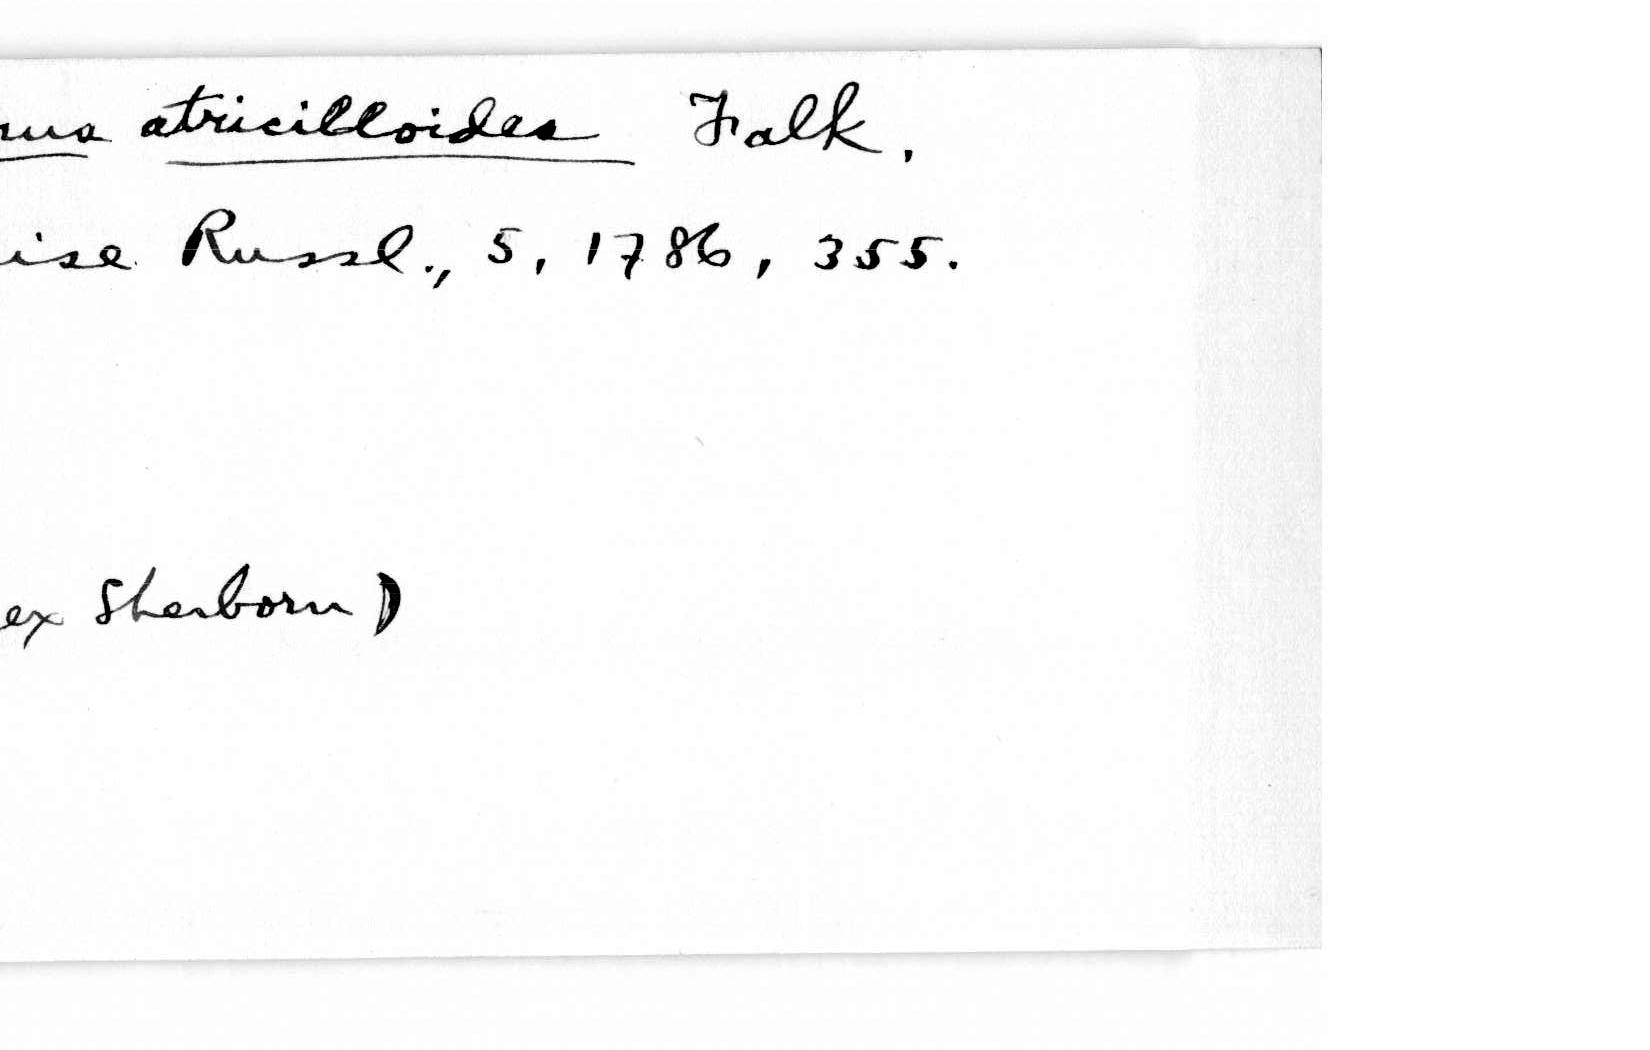 rus atricilloides Falk.
ise Russl., 5, 1786, 355.
ex Sherborn)